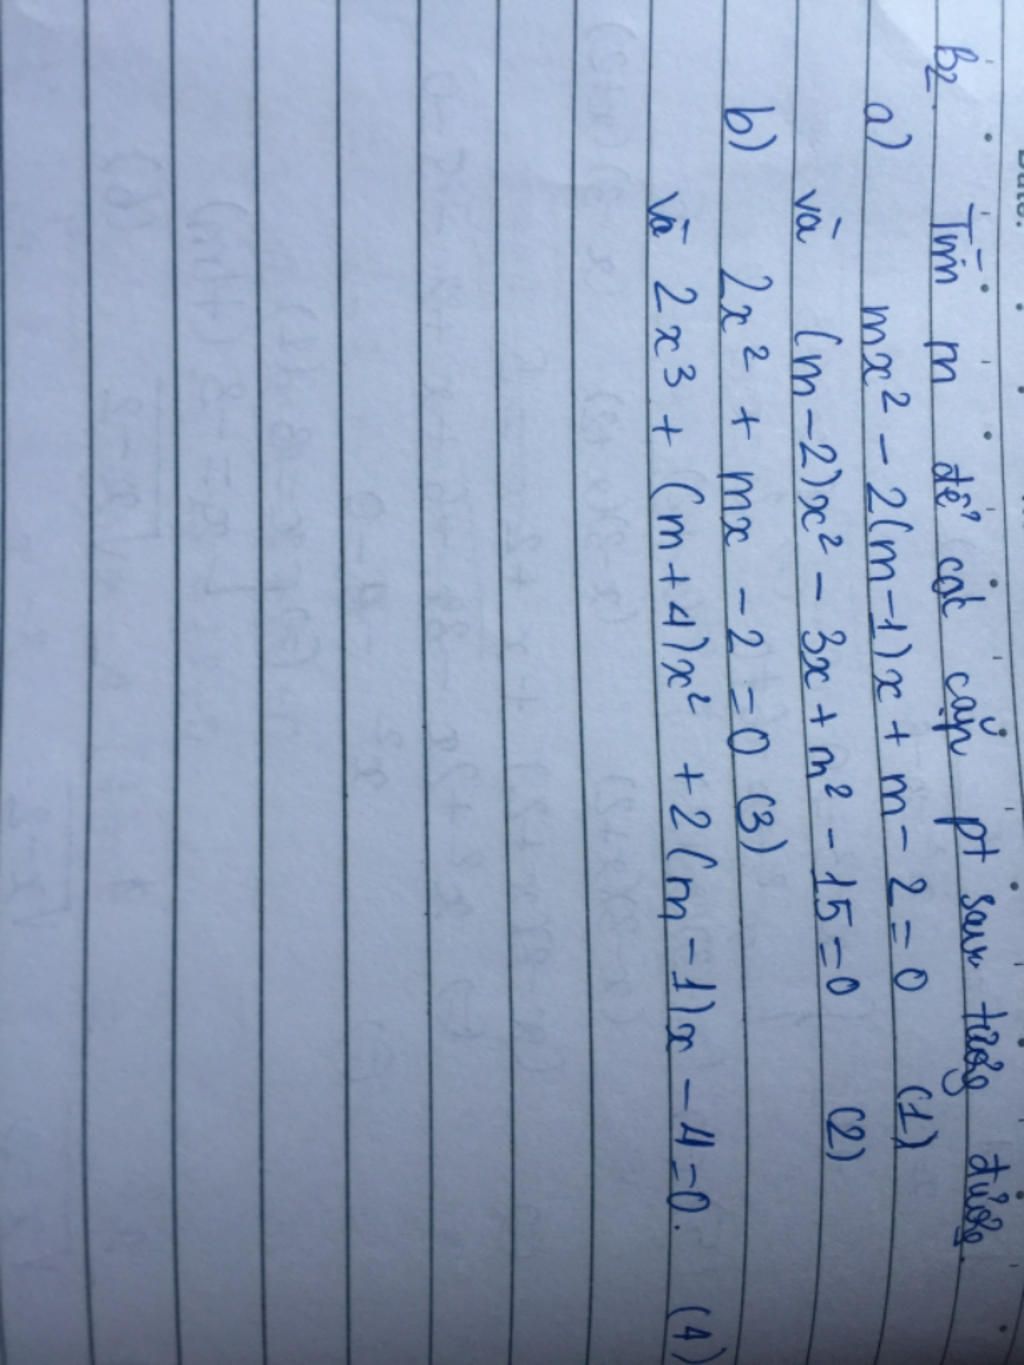 Date:
B2. Tìm m để các cặp pt sau tương đương.
a) mx² - 2(m-1)x + m - 2 = 0 (1)
và (m-2)x² - 3x + m² - 15 = 0 (2)
b) 2x² + mx - 2 = 0 (3)
và 2x³ + (m+4)x² + 2(m-1)x - 4 = 0. (4)